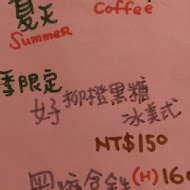 夏天 Coffee
Summer
季限定
好柳橙黑糖
冰美式
NT$150
(H) 16